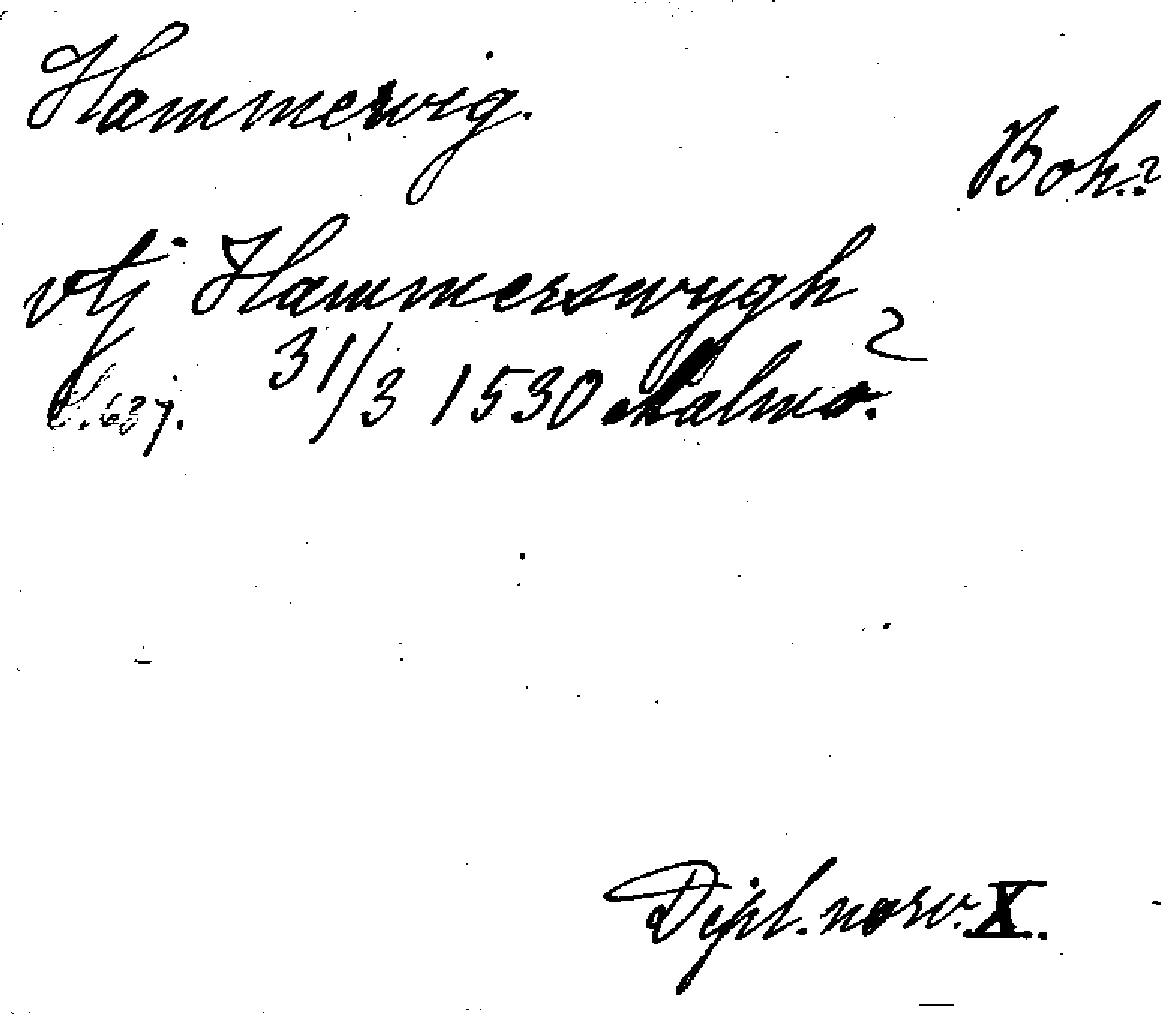 Hammervig.
Boh.?
vtj Hammerswygh ?
S. 637. 31/3 1530 Malmö.
Dipl. norv. X.